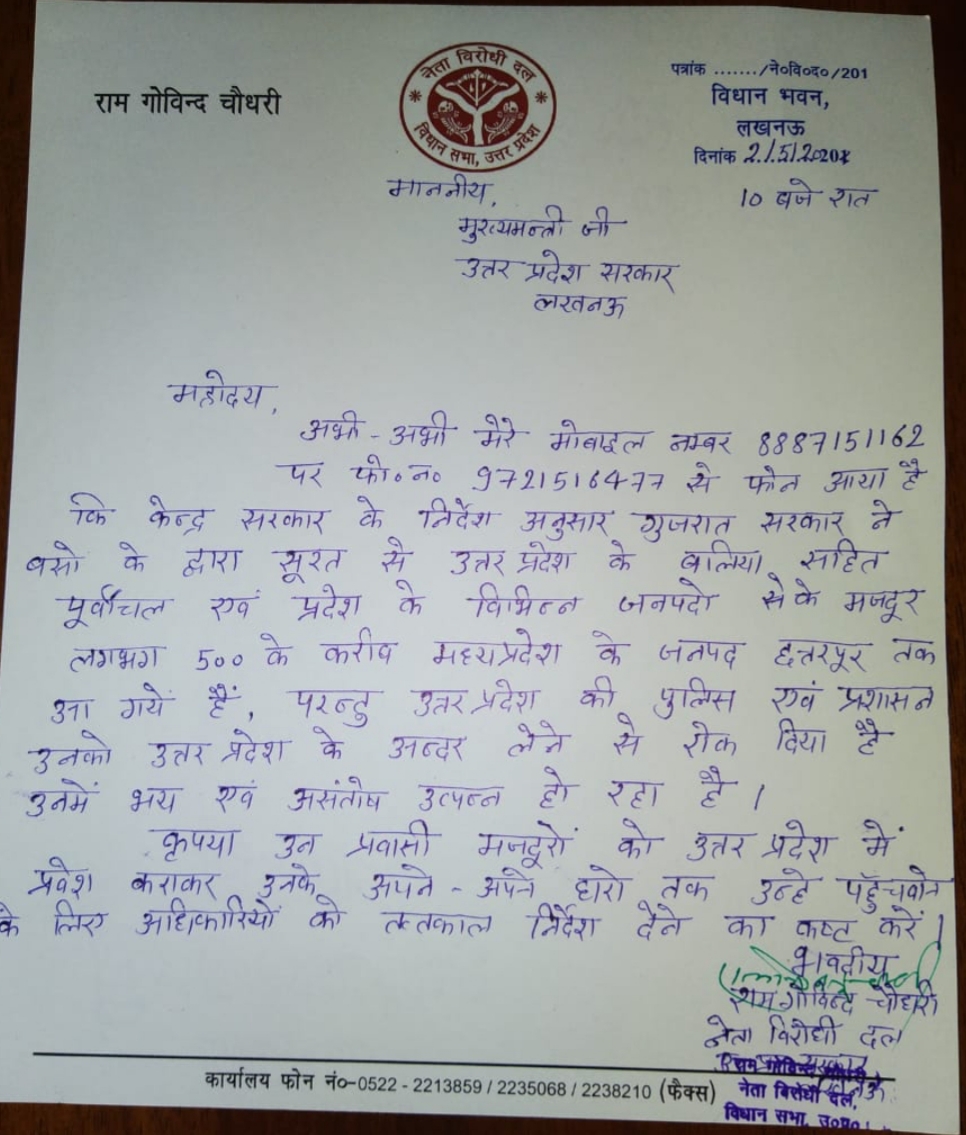 राम गोविन्द चौधरी
नेता विरोधी दल
विधान सभा, उत्तर प्रदेश
पत्रांक ......./ने०वि०द०/201
विधान भवन,
लखनऊ
दिनांक 2/5/2020
10 बजे रात
माननीय,
मुख्यमन्त्री जी
उत्तर प्रदेश सरकार
लखनऊ
महोदय,
अभी - अभी मेरे मोबाइल नम्बर 8887151162
पर फो०न० 9721516477 से फोन आया है
कि केन्द्र सरकार के निर्देश अनुसार गुजरात सरकार ने
बसो के द्वारा सूरत से उत्तर प्रदेश के बलिया सहित
पूर्वांचल एवं प्रदेश के विभिन्न जनपदो सेके मजदूर
लगभग 500 के करीब मध्यप्रदेश के जनपद छत्तरपूर तक
आ गये हैं, परन्तु उत्तर प्रदेश की पुलिस एवं प्रशासन
उनको उत्तर प्रदेश के अन्दर लेने से रोक दिया है
उनमें भय एवं असंतोष उत्पन्न हो रहा है।
कृपया उन प्रवासी मजदूरों को उत्तर प्रदेश में
प्रवेश कराकर उनके अपने - अपने घरो तक उन्हे पहुँचवाने
के लिए अधिकारियों को तत्काल निर्देश देने का कष्ट करें।
भवदीय
राम गोविन्द चौधरी
नेता विरोधी दल
राम गोविन्द
नेता विरोधी दल,
विधान सभा, उ०प्र०
कार्यालय फोन नं०-0522 - 2213859 / 2235068 / 2238210 (फैक्स)